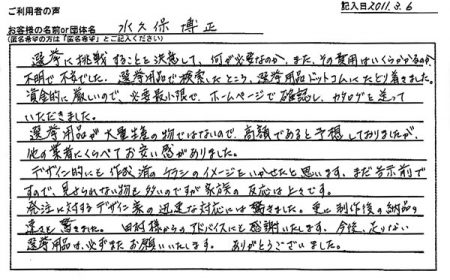 ご利用者の声
記入日2011.3.6
お客様の名前or団体名 水久保博正
(匿名希望の方は「匿名希望」とご記入ください)
選挙に挑戦することを決意して、何が必要なのか、また、その費用はいくらかかるのか
不明で不安でした。選挙用品で検索したところ、選挙用品ドットコムにたどり着きました。
資金的に厳しいので、必要最小限で、ホームページで確認し、カタログを送って
いただきました。
選挙用品が大量生産の物ではないので、高額であると予想しておりましたが、
他の業者にくらべてお安い感がありました。
デザイン的にも作成済のチラシのイメージをいかせたと思います。まだ告示前で
すので、見せられない物も多いのですが家族の反応は上々です。
発注に対するデザイン案の迅速な対応には驚きました。更に制作後の納品の
速さも驚きました。田村様からのアドバイスにも感謝いたします。今後、足りない
選挙用品は必ずまたお願いいたします。ありがとうございました。